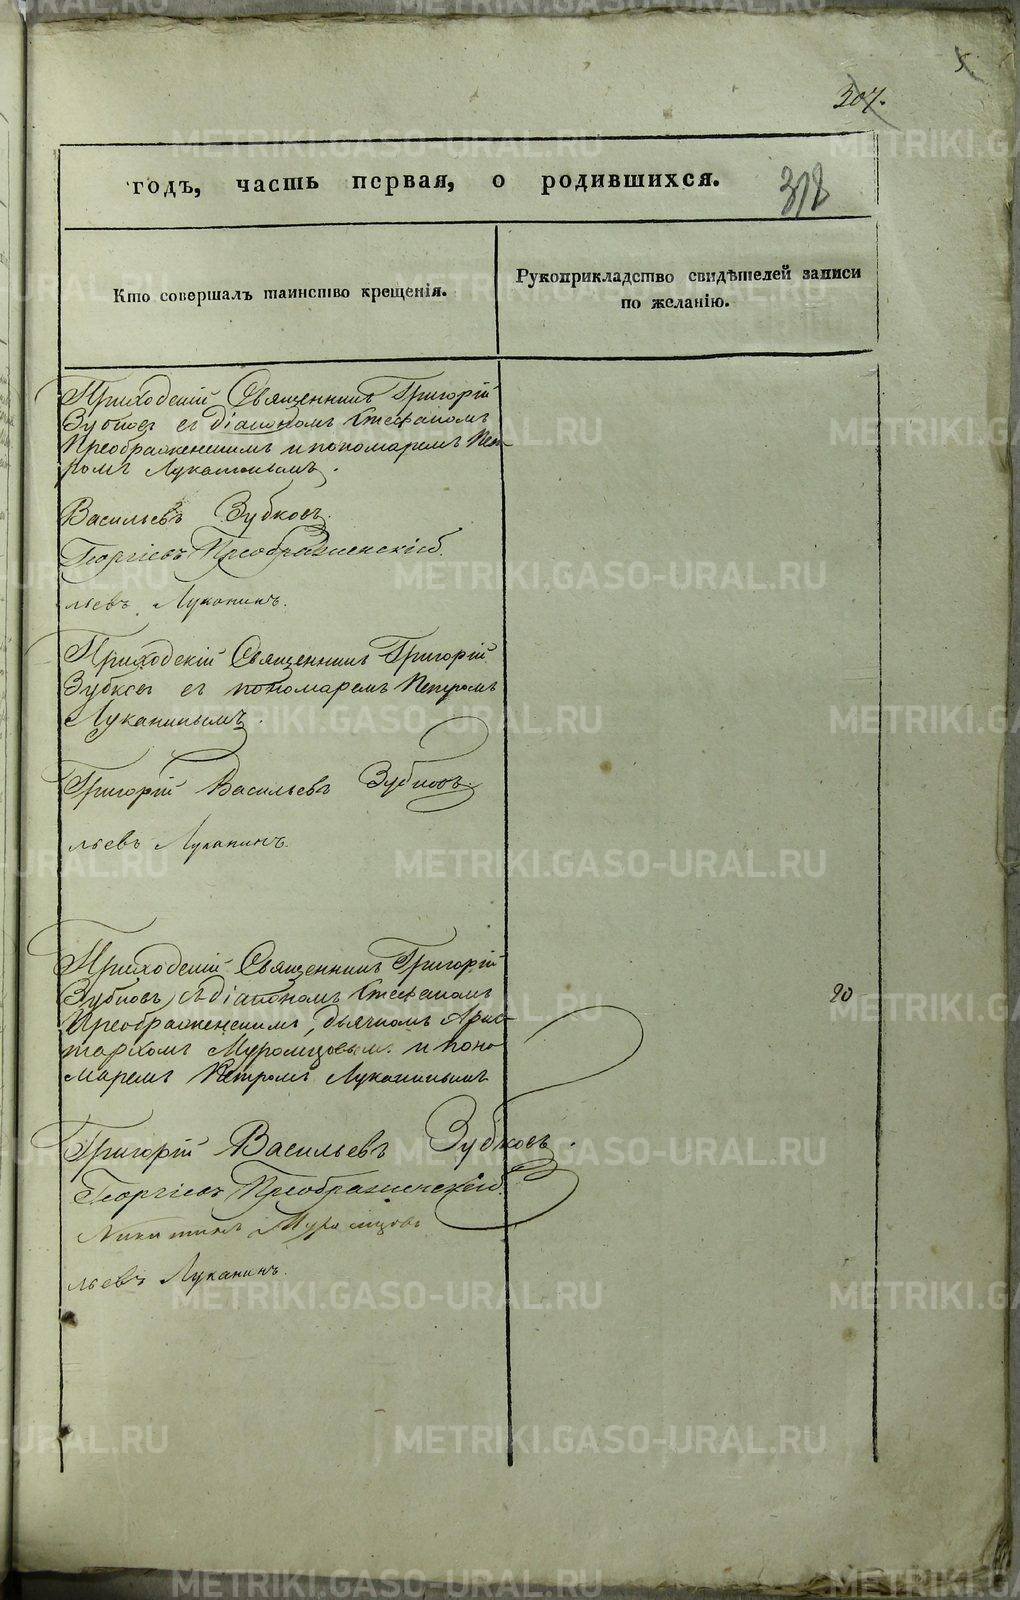 5.
307.
годъ, часть первая, о родившихся.
318
Кто совершалъ таинство крещенія.
Рукоприкладство свидѣтелей записи
по желанію.
Приходскій Священникъ Григорій
Зубковъ съ діакономъ Стефаномъ
Преображенскимъ и пономаремъ Пет-
ромъ Луканинымъ.
Васильевъ Зубковъ.
Георгіевъ Преображенскій.
льевъ Луканинъ.
Приходскій Священникъ Григорій
Зубковъ съ пономаремъ Петромъ
Луканинымъ.
Григорій Васильевъ Зубковъ.
льевъ Луканинъ.
Приходскій Священникъ Григорій
Зубковъ, съ діакономъ Стефаномъ
Преображенскимъ, дьячкомъ Арис-
тархомъ Муромцовымъ и поно-
маремъ Петромъ Луканинымъ
20
Григорій Васильевъ Зубковъ.
Георгіевъ Преображенскій.
Никитинъ Муромцовъ
льевъ Луканинъ.
METRIKI.GASO-URAL.RU